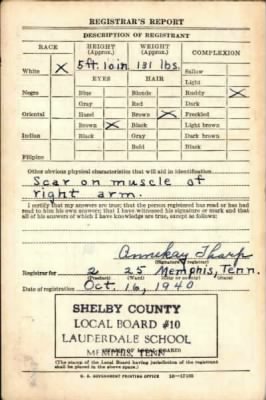 REGISTRAR'S REPORT
DESCRIPTION OF REGISTRANT
RACE HEIGHT (Approx.) WEIGHT (Approx.) COMPLEXION
White X 5 ft. 10 in. 131 lbs. Sallow
EYES HAIR Light
Negro Blue Blonde Ruddy X
Gray Red Dark
Oriental Hazel Brown X Freckled
Brown X Black Light brown
Indian Black Gray Dark brown
Bald Black
Filipino
Other obvious physical characteristics that will aid in identification
Scar on muscle of
right arm.
I certify that my answers are true; that the person registered has read or has had
read to him his own answers; that I have witnessed his signature or mark and that
all of his answers of which I have knowledge are true, except as follows:
Annekay Tharp
(Signature of registrar)
Registrar for 2 25 Memphis, Tenn.
(Precinct) (Ward) (City or county) (State)
Date of registration Oct. 16, 1940
SHELBY COUNTY
LOCAL BOARD #10
LAUDERDALE SCHOOL
MEMPHIS, TENN
(STAMP OF LOCAL BOARD)
(The stamp of the Local Board having jurisdiction of the registrant
shall be placed in the above space.)
U. S. GOVERNMENT PRINTING OFFICE 16-17105